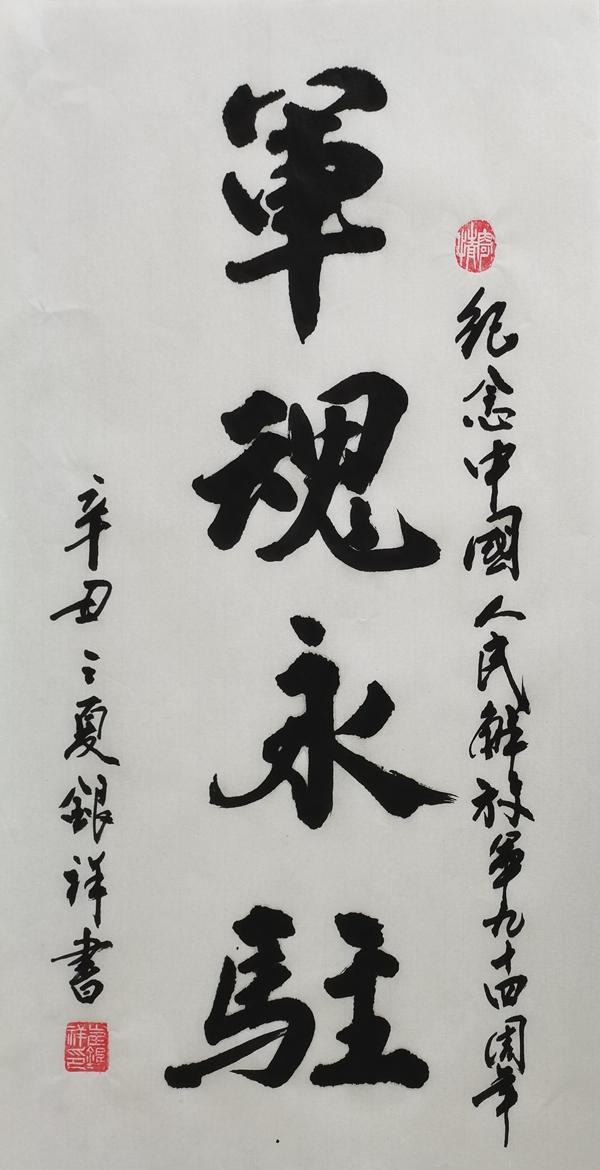 紀念中國人民解放軍九十四周年
軍魂永駐
辛丑之夏銀祥書